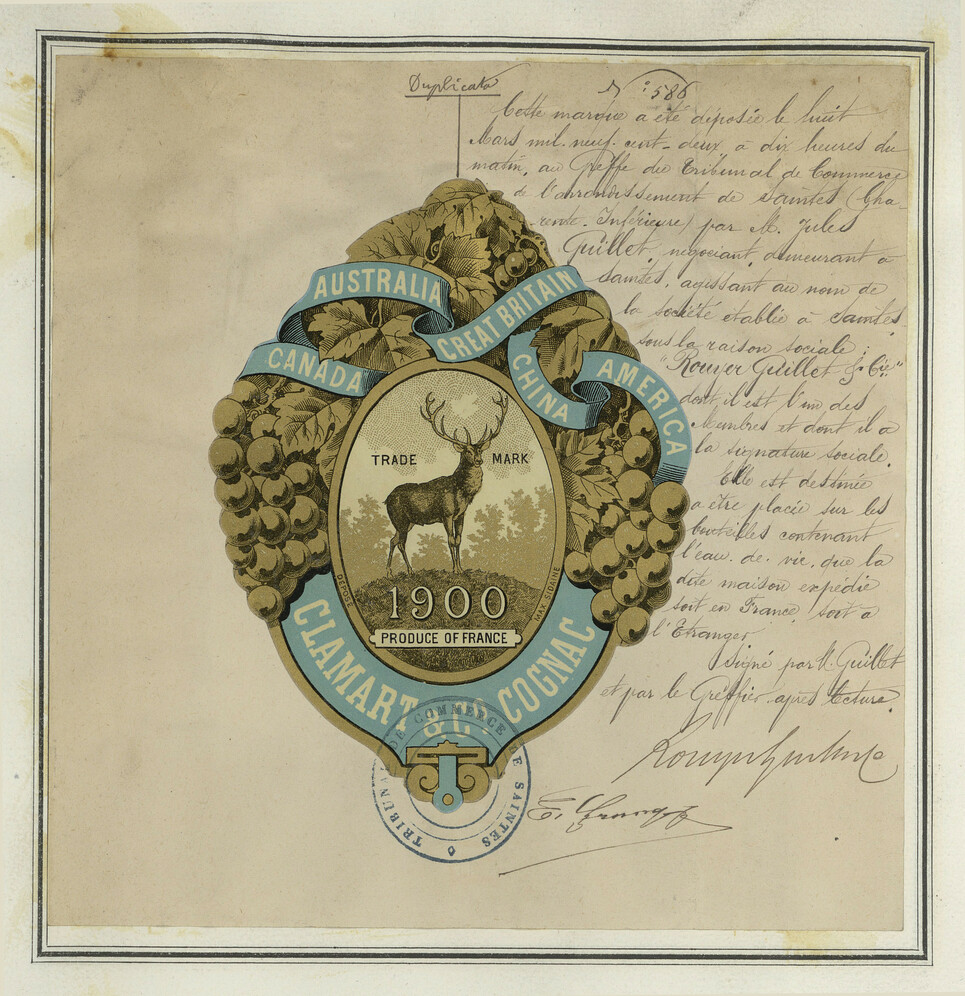 Duplicata
N° 586
Cette marque a été déposée le huit
Mars mil. neuf. cent-deux à dix heures du
matin, au Greffe du Tribunal de Commerce
de l'arrondissement de Saintes (Cha-
rente Inférieure) par M. Jules
Guillet, négociant, demeurant à
Saintes, agissant au nom de
la société établie à Saintes
sous la raison sociale :
"Rouyer Guillet & Cie"
dont il est l'un des
Membres et dont il a
la signature sociale.
Elle est destinée
à être placée sur les
bouteilles contenant
l'eau. de. vie. que la
dite maison expédie
soit en France, soit à
l'Etranger
Signé par M. Guillet
et par le Greffier après lecture.
AUSTRALIA
GREAT BRITAIN
CANADA
CHINA
AMERICA
TRADE MARK
DÉPOSÉ
MAX SICAINE
1900
PRODUCE OF FRANCE
CLAMART & Co. COGNAC
TRIBUNAL DE COMMERCE DE SAINTES